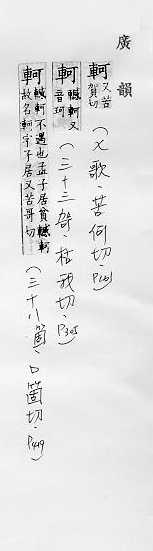 廣韻
軻 又苦賀切 (七歌、苦何切、P161)
軻 轗軻又音珂 (三十三哿、枯我切、P305)
軻 轗軻不遇也孟子居貧轗軻故名軻字子居又苦哥切 (三十八箇、口箇切、P419)